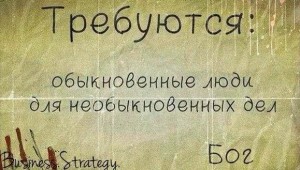 Требуются:
обыкновенные люди
для необыкновенных дел
Бог
Business Strategy